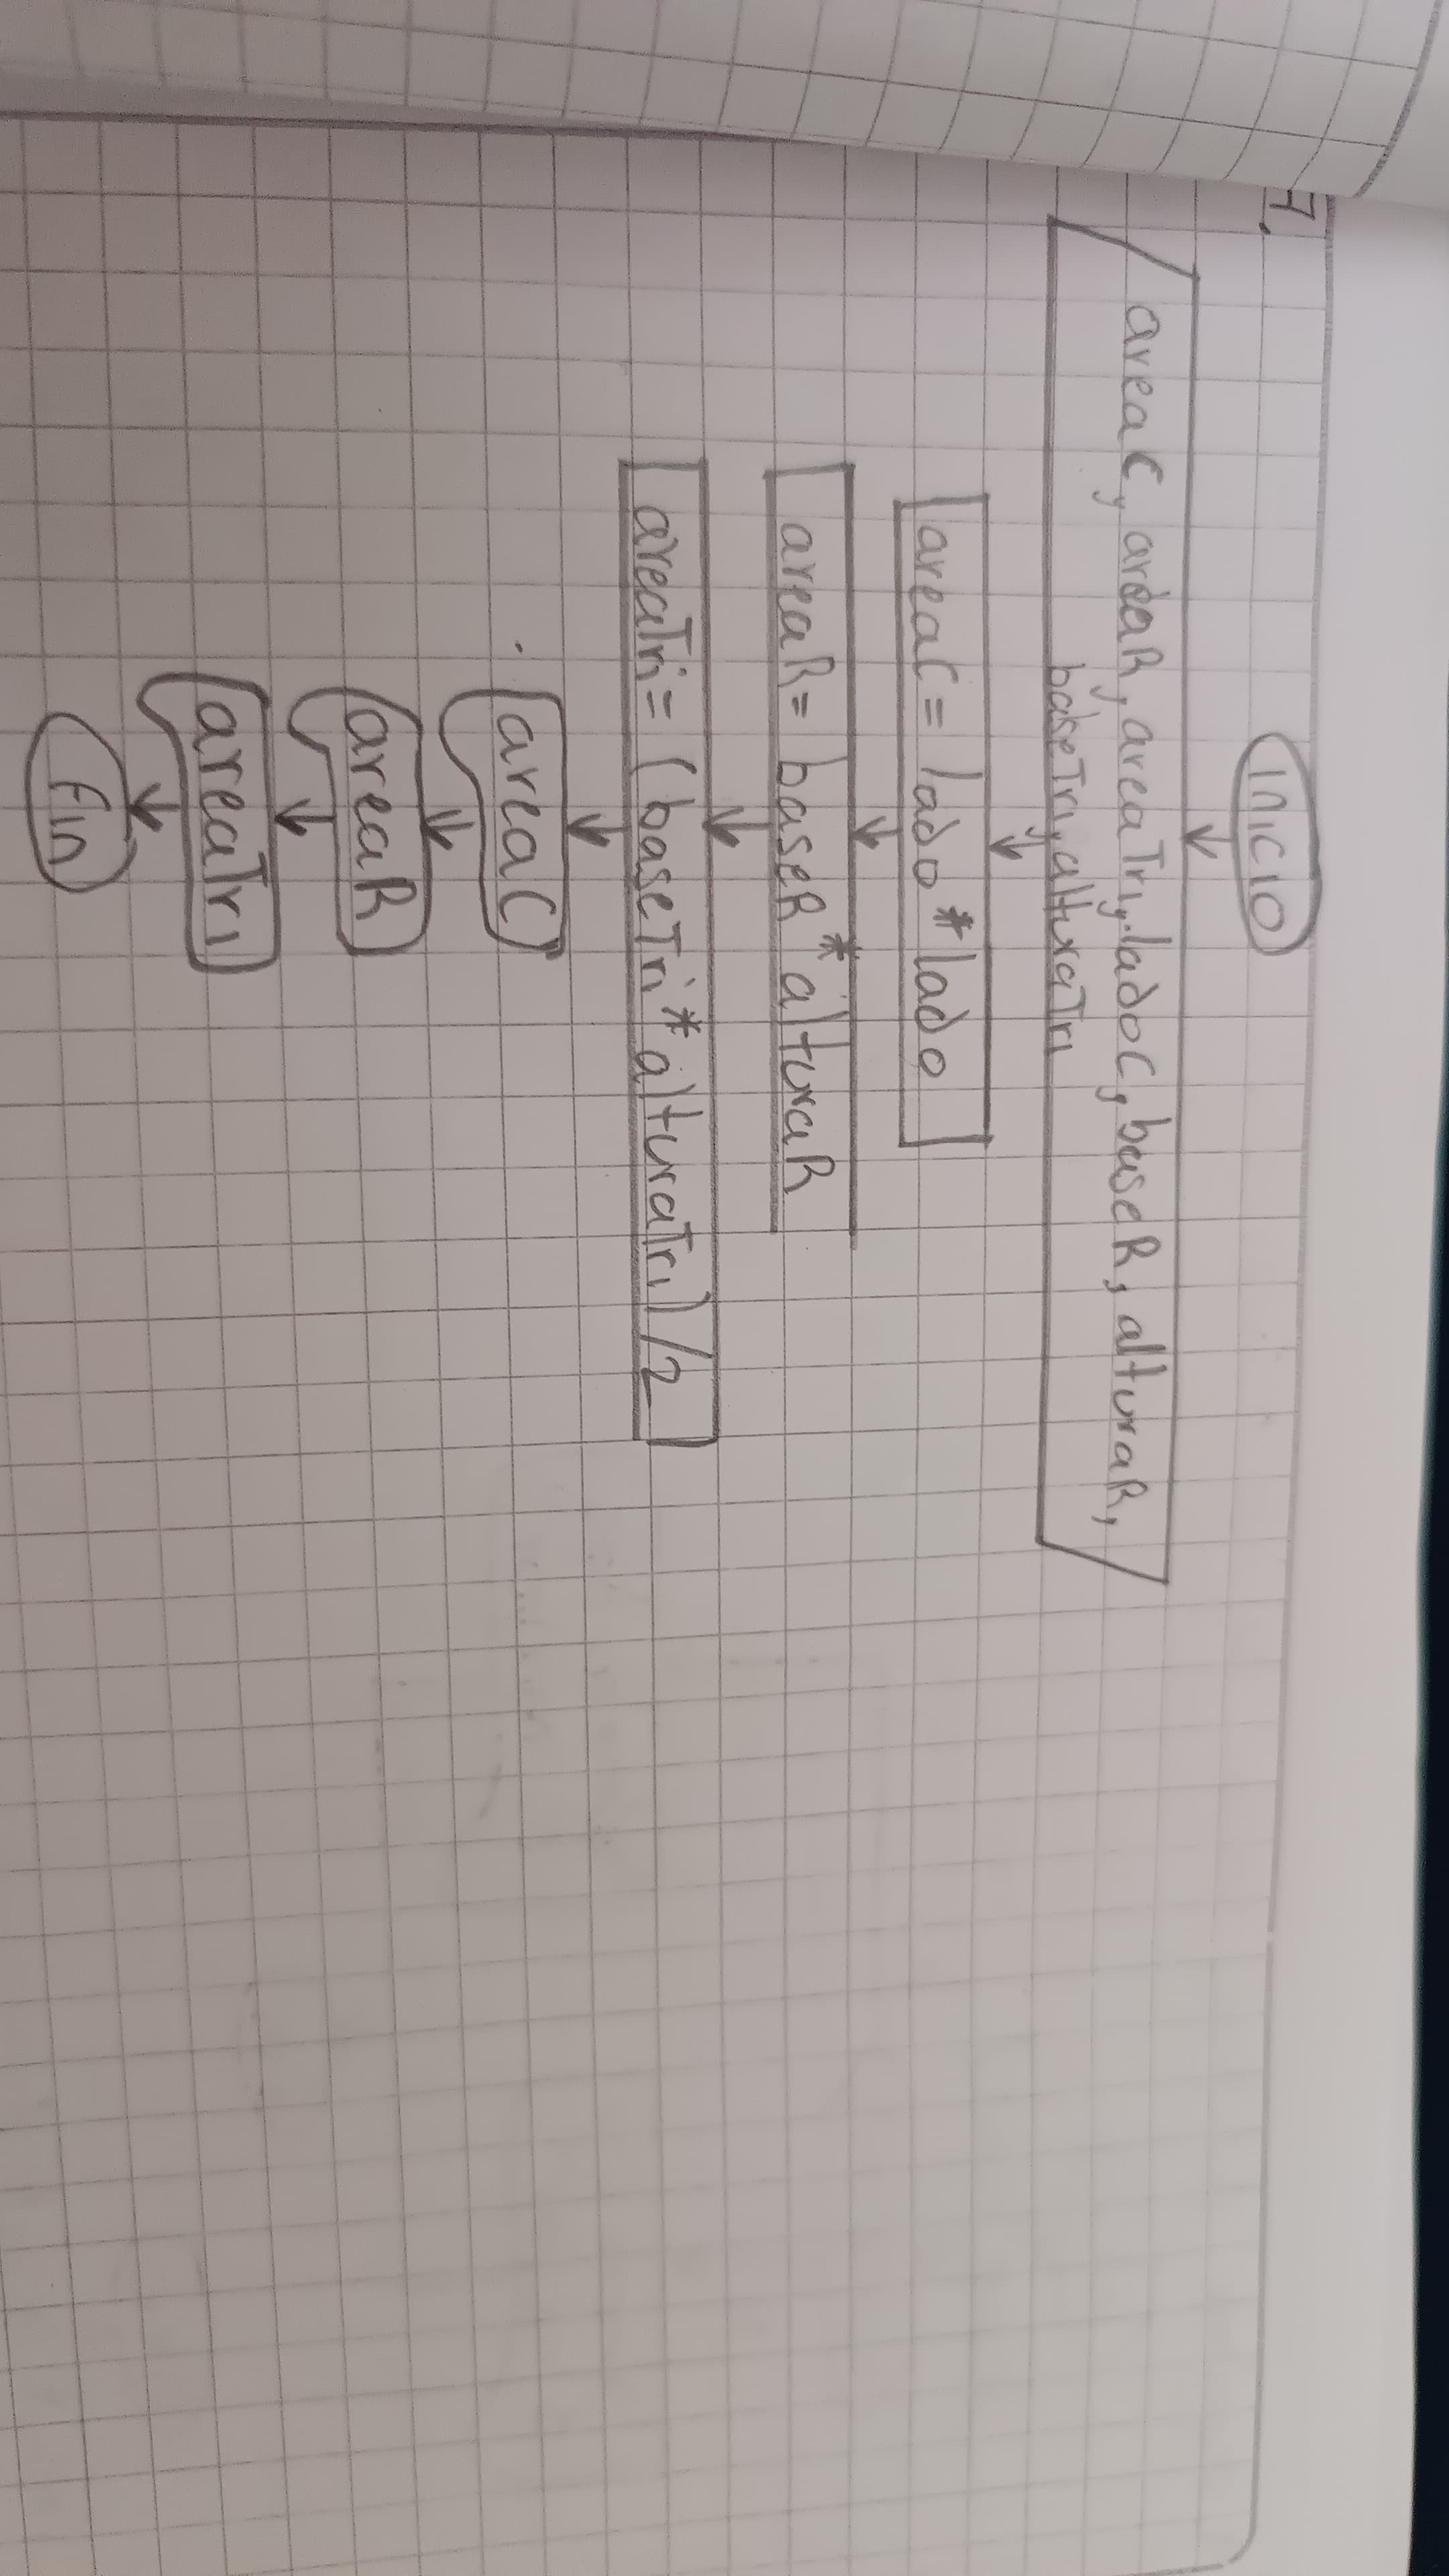 7.
Inicio
areaC, areaR, areaTri, ladoC, baseR, alturaR,
baseTri, alturaTri
areaC = lado * lado
areaR = baseR * alturaR
areaTri = (baseTri * alturaTri)/2
areaC
areaR
areaTri
Fin